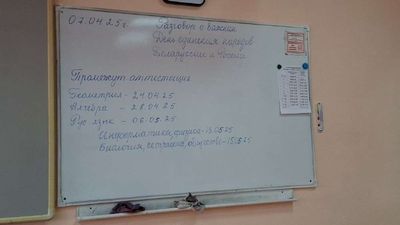 07.04.25г.
Разговор о важном
День единения народов
Беларуссии и России
Промежут аттестация
Геометрия - 24.04.25
Алгебра - 28.04.25
Рус язык - 06.05.25
Информатика, физика - 13.05.25
Биология, география, общество - 15.05.25